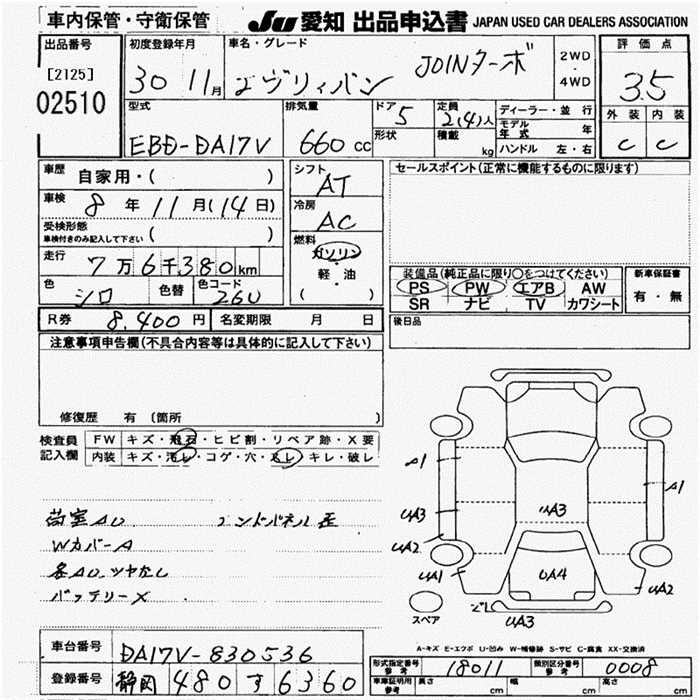 車内保管・守衛保管
JU 愛知 出品申込書 JAPAN USED CAR DEALERS ASSOCIATION
出品番号
[2125]
02510
初度登録年月
30 11月
車名・グレード
エヴリィバン JOINターボ
2WD
4WD
評価点
3.5
外装 内装
C C
型式
EBD-DA17V
排気量
660 cc
ドア 5
形状
定員 2(4)人
積載 kg
ディーラー・並行
モデル年式 年
ハンドル 左・右
車歴 自家用・( )
車検 8年11月(14日)
受検形態
車検付きのみ記入して下さい ( )
走行 7万6千380km
色 シロ
色替
色コード 26U
シフト AT
冷房 AC
燃料
ガソリン
・
軽・油
( )
セールスポイント(正常に機能するものに限ります)
装備品(純正品に限り○をつけてください)
PS PW エアB AW
SR ナビ TV カワシート
新車保証書
有・無
R券 8,400円
名変期限 月 日
後日品
注意事項申告欄(不具合内容等は具体的に記入して下さい)
修復歴 有 〔箇所
検査員 FW キズ・飛石・ヒビ割・リペア跡・X要
記入欄 内装 キズ・汚レ・コゲ・穴・スレ・キレ・破レ
荷室AU エンドパネル歪
WカバーA
各AU、ツヤなし
バッテリーX
A1
UA3
UA2
UA1
UA3
UA4
A1
UA2
スペア
UA3
A-キズ E-エクボ U-凹み W-補修跡 S-サビ C-腐食 XX-交換済
車台番号 DA17V-830536
登録番号 静岡 480 す 6360
形式指定番号 参考 18011
類別区分番号 参考 0008
車庫証明用 参考 長さ cm 幅 cm 高さ cm